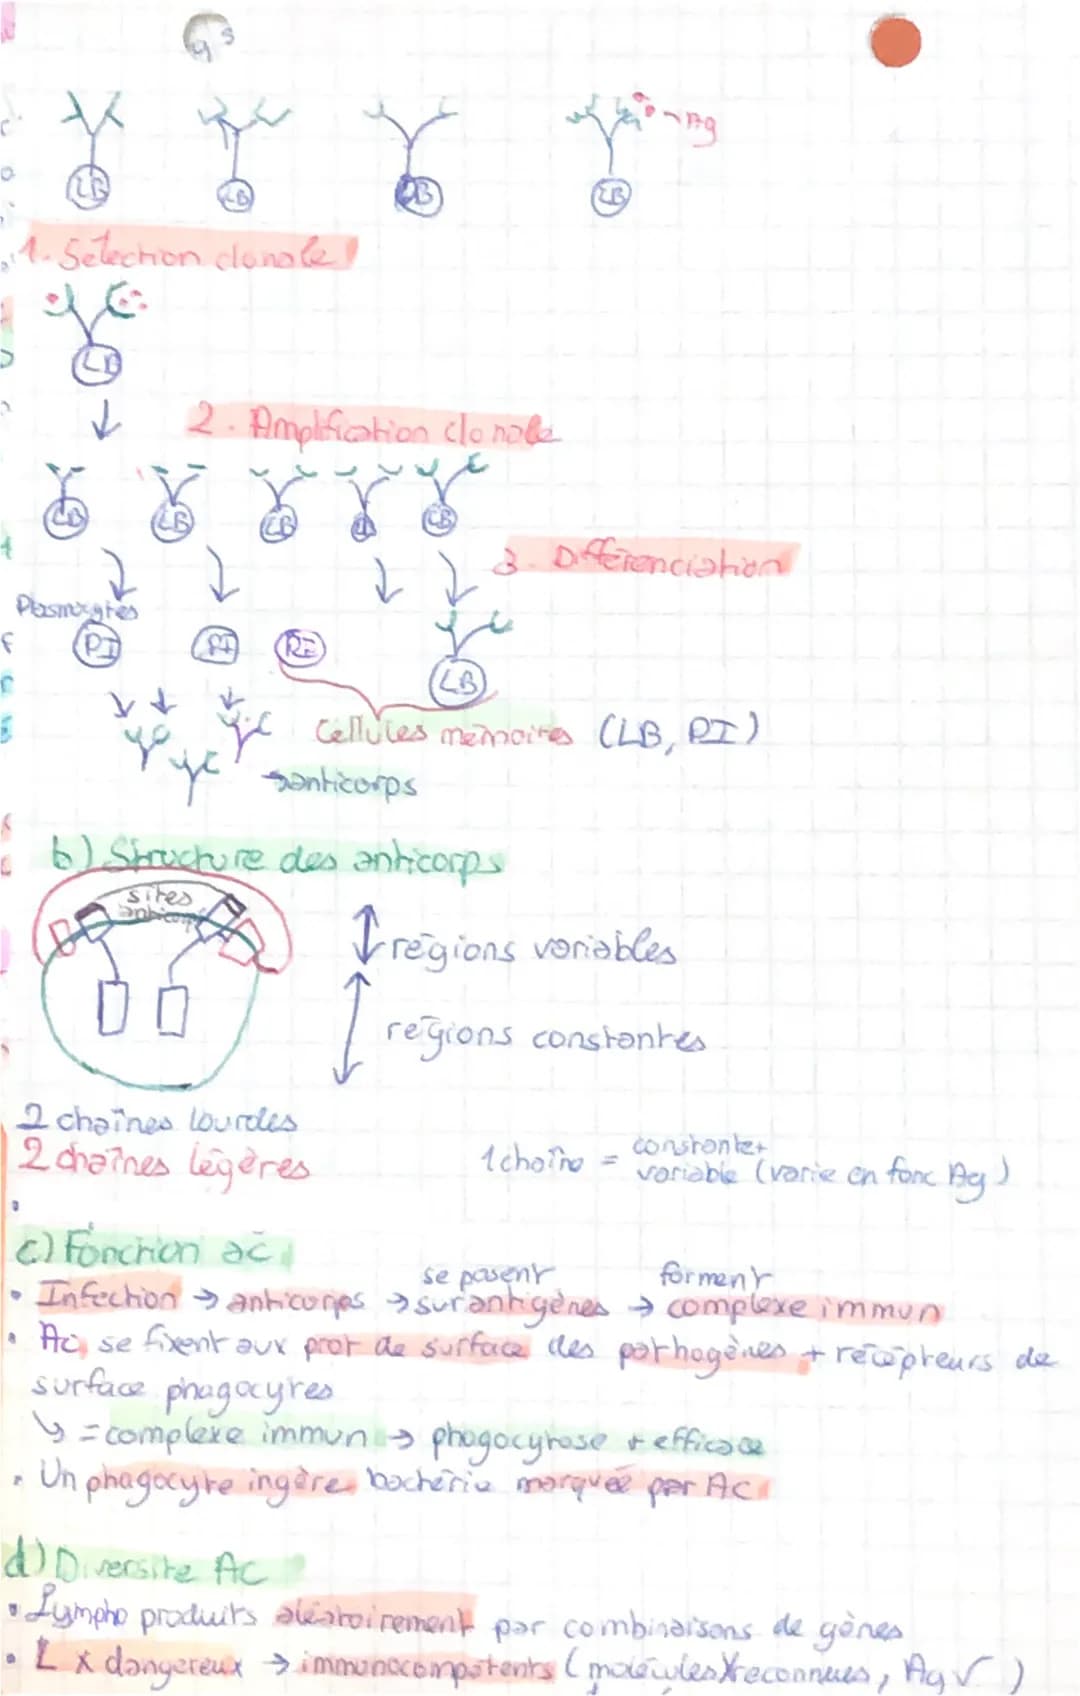 LB LB LB LB Ag
1. Sélection clonale
LB
2. Amplification clonale
LB LB LB LB LB
3. Différenciation
Plasmocytes
PI PI PI LB
Cellules mémoires (LB, PI)
→ anticorps
b) Structure des anticorps
sites
anticorps
régions variables
régions constantes
2 chaînes lourdes
2 chaînes légères
1 chaîne = constante + variable (varie en fonc Ag)
c) Fonction ac
• Infection → anticorps → se posent sur antigènes → forment complexe immun
• Ac se fixent aux prot de surface des pathogènes + récépteurs de
surface phagocytes
↳ = complexe immun → phagocytose + efficace
• Un phagocyte ingère bactérie marquée par AC
d) Diversite AC
• Lympho produits aléatoirement par combinaisons de gènes
• L x dangereux → immunocompétents (molécules X reconnues, Ag √)